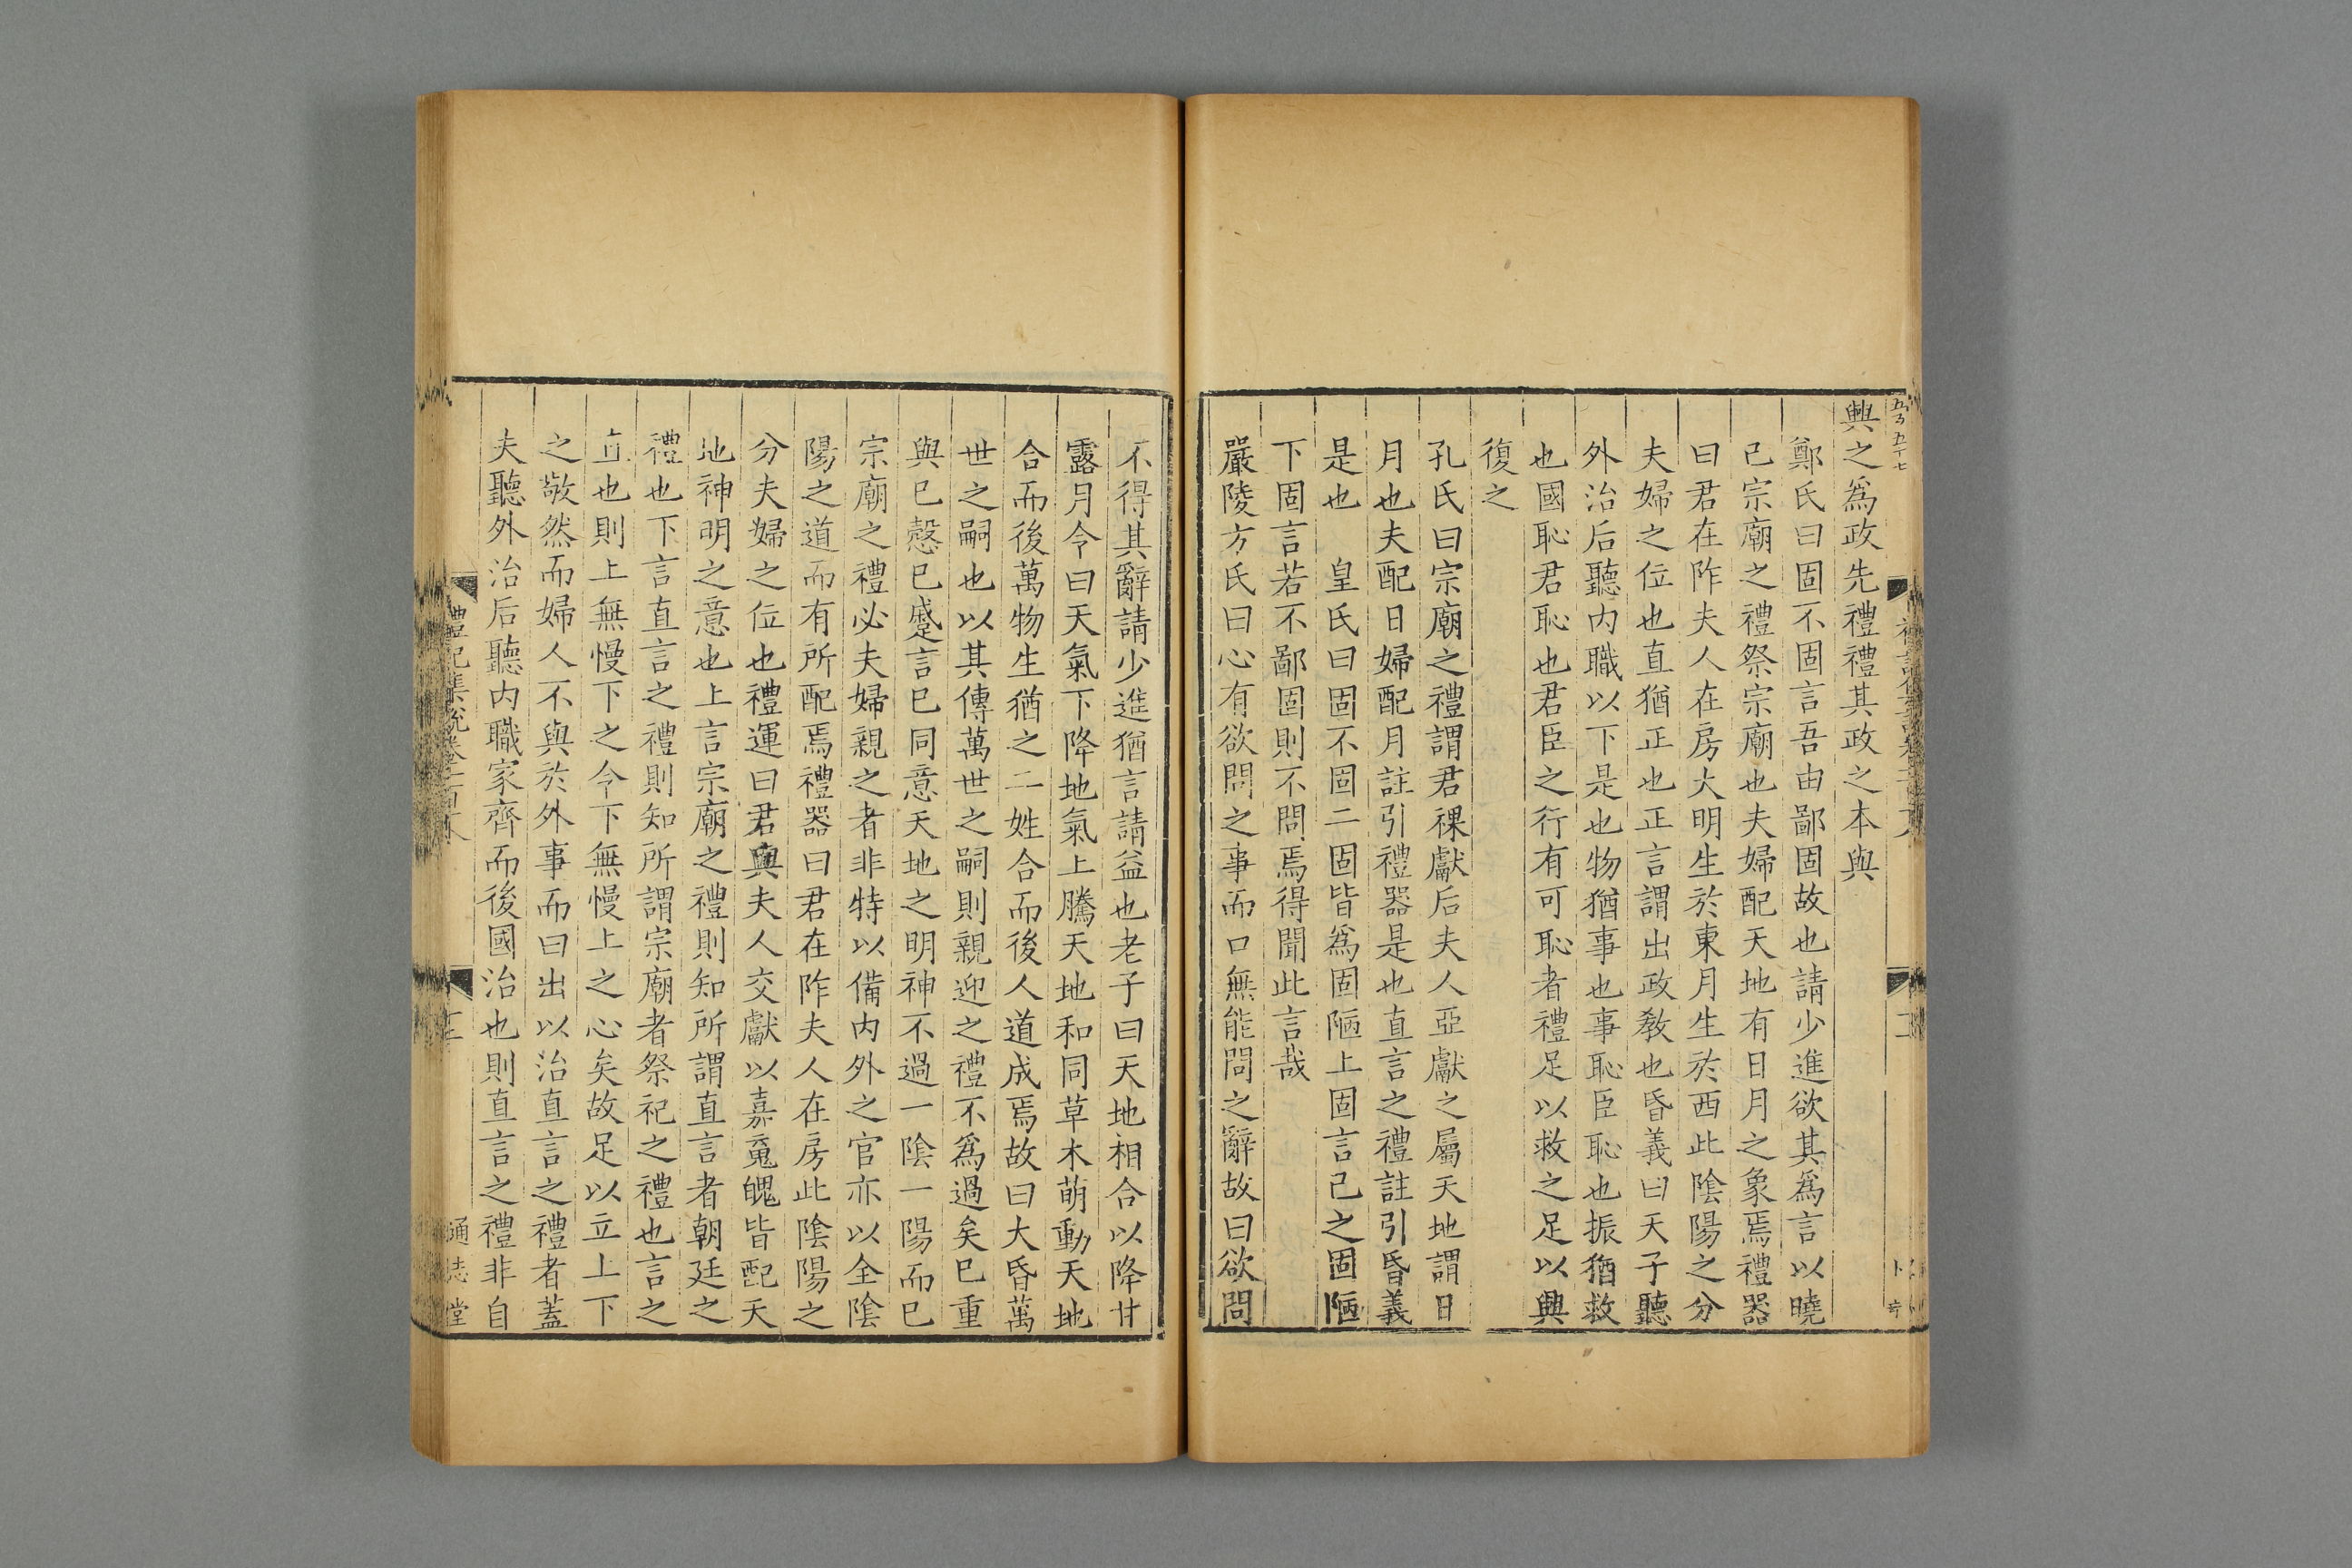 興之爲政先禮禮其政之本與
鄭氏曰固不固言吾由鄙固故也請少進欲其爲言以曉
己宗廟之禮祭宗廟也夫婦配天地有日月之象焉禮器
曰君在阼夫人在房大明生於東月生於西此陰陽之分
夫婦之位也直猶正也正言謂出政教也昏義曰天子聽
外治后聽内職以下是也物猶事也事恥臣恥也振猶救
也國恥君恥也君臣之行有可恥者禮足以救之足以興
復之
孔氏曰宗廟之禮謂君祼獻后夫人亞獻之屬天地謂日
月也夫配日婦配月註引禮器是也直言之禮註引昏義
是也 皇氏曰固不固二固皆爲固陋上固言己之固陋
下固言若不鄙固則不問焉得聞此言哉
嚴陵方氏曰心有欲問之事而口無能問之辭故曰欲問
不得其辭請少進猶言請益也老子曰天地相合以降甘
露月令曰天氣下降地氣上騰天地和同草木萌動天地
合而後萬物生猶之二姓合而後人道成焉故曰大昏萬
世之嗣也以其傳萬世之嗣則親迎之禮不爲過矣巳重
與巳愨巳蹙言巳同意天地之明神不過一陰一陽而巳
宗廟之禮必夫婦親之者非特以備内外之官亦以全陰
陽之道而有所配焉禮器曰君在阼夫人在房此陰陽之
分夫婦之位也禮運曰君與夫人交獻以嘉䰟魄皆配天
地神明之意也上言宗廟之禮則知所謂直言者朝廷之
禮也下言直言之禮則知所謂宗廟者祭祀之禮也言之
直也則上無慢下之令下無慢上之心矣故足以立上下
之敬然而婦人不與於外事而曰出以治直言之禮者蓋
夫聽外治后聽内職家齊而後國治也則直言之禮非自
禮記集說卷
通志堂